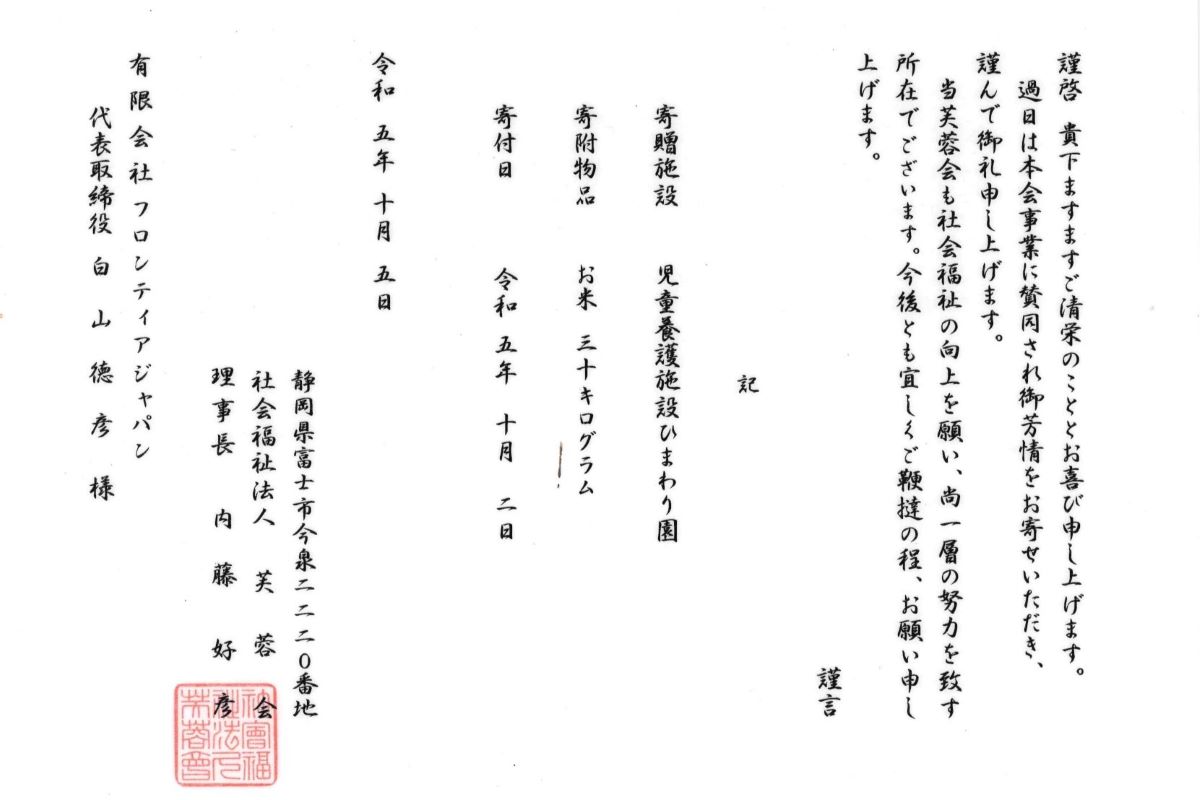 謹啓 貴下ますますご清栄のこととお喜び申し上げます。
過日は本会事業に賛同され御芳情をお寄せいただき、
謹んで御礼申し上げます。
当芙蓉会も社会福祉の向上を願い、尚一層の努力を致す
所在でございます。今後とも宜しくご鞭撻の程、お願い申し
上げます。
謹言
記
寄贈施設 児童養護施設ひまわり園
寄附物品 お米 三十キログラム
寄付日 令和 五年 十月 二日
令和 五年 十月 五日
静岡県富士市今泉二二二〇番地
社会福祉法人 芙蓉会
理事長 内藤好彦
社會福
祉法人
芙蓉會
有限会社フロンティアジャパン
代表取締役 白山徳彦様